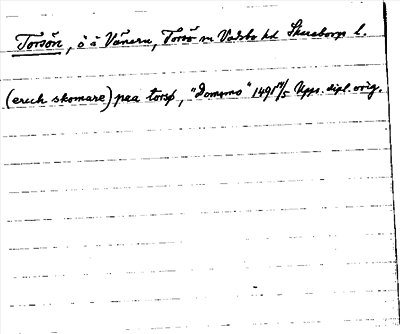 Torsön, ö i Vänern, Torsö sn Vadsbo hd Skaraborgs l.
(erich skomare) paa torsø, "Domomo" 1491 Upps. dipl. orig.